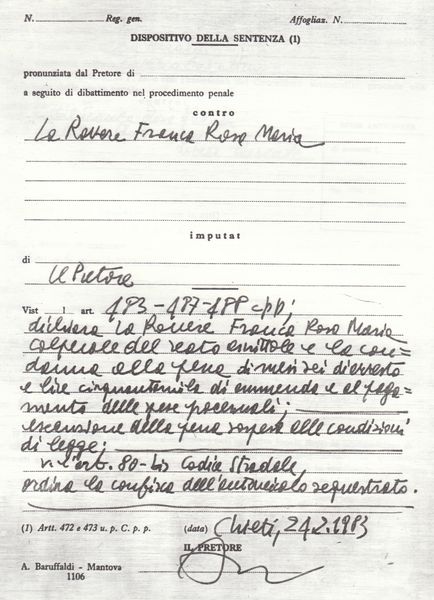 N. Reg. gen. Affogliaz. N.
DISPOSITIVO DELLA SENTENZA (1)
pronunziata dal Pretore di
a seguito di dibattimento nel procedimento penale
contro
La Rovere Franca Rosa Maria
imputat
di
Il Pretore
Vist i art. 483-487-488 cpp;
dichiara La Rovere Franca Rosa Maria
colpevole del reato ascrittole e la con=
danna alla pena di mesi sei di arresto
e lire cinquantamila di ammenda e al paga=
mento delle spese processuali;
esecuzione della pena sospesa alle condizioni
di legge;
v. l'art. 80-bis Codice Stradale,
ordina la confisca dell'autoveicolo sequestrato.
(1) Artt. 472 e 473 u. p. C. p. p. (data) Chieti, 24.2.1983
IL PRETORE
A. Baruffaldi - Mantova
1106